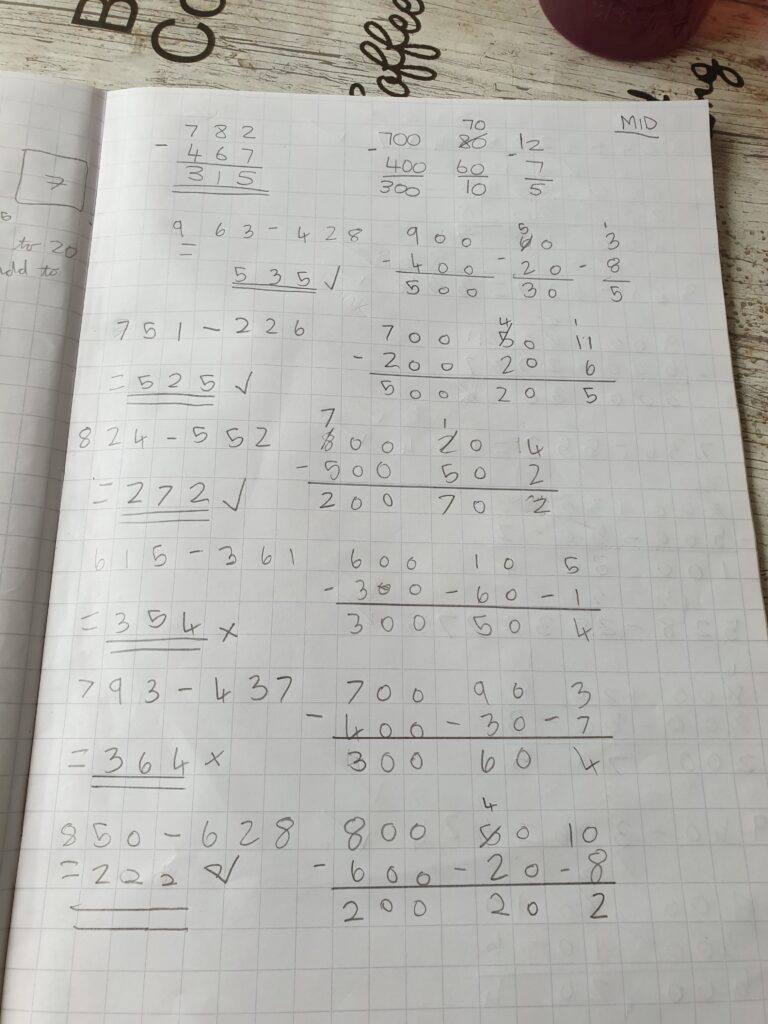 B
Co
Coffee
ng
MID
7
to 20
add to
7 8 2
- 4 6 7
3 1 5
70
- 700 80 - 12
400 60 7
300 10 5
9 6 3 - 4 2 8
= 5 3 5 ✓
5 1
9 0 0 6 0 3
- 4 0 0 - 2 0 - 8
5 0 0 3 0 5
7 5 1 - 2 2 6
= 5 2 5 ✓
4 1
7 0 0 5 0 11
- 2 0 0 2 0 6
5 0 0 2 0 5
8 2 4 - 5 5 2
= 2 7 2 ✓
7 1
8 0 0 2 0 14
- 5 0 0 5 0 2
2 0 0 7 0 2
6 1 5 - 3 6 1
= 3 5 4 x
6 0 0 1 0 5
- 3 0 0 - 6 0 - 1
3 0 0 5 0 4
7 9 3 - 4 3 7
= 3 6 4 x
7 0 0 9 0 3
- 4 0 0 - 3 0 - 7
3 0 0 6 0 4
8 5 0 - 6 2 8
= 2 2 2 ✓
4
8 0 0 5 0 10
- 6 0 0 - 2 0 - 8
2 0 0 2 0 2